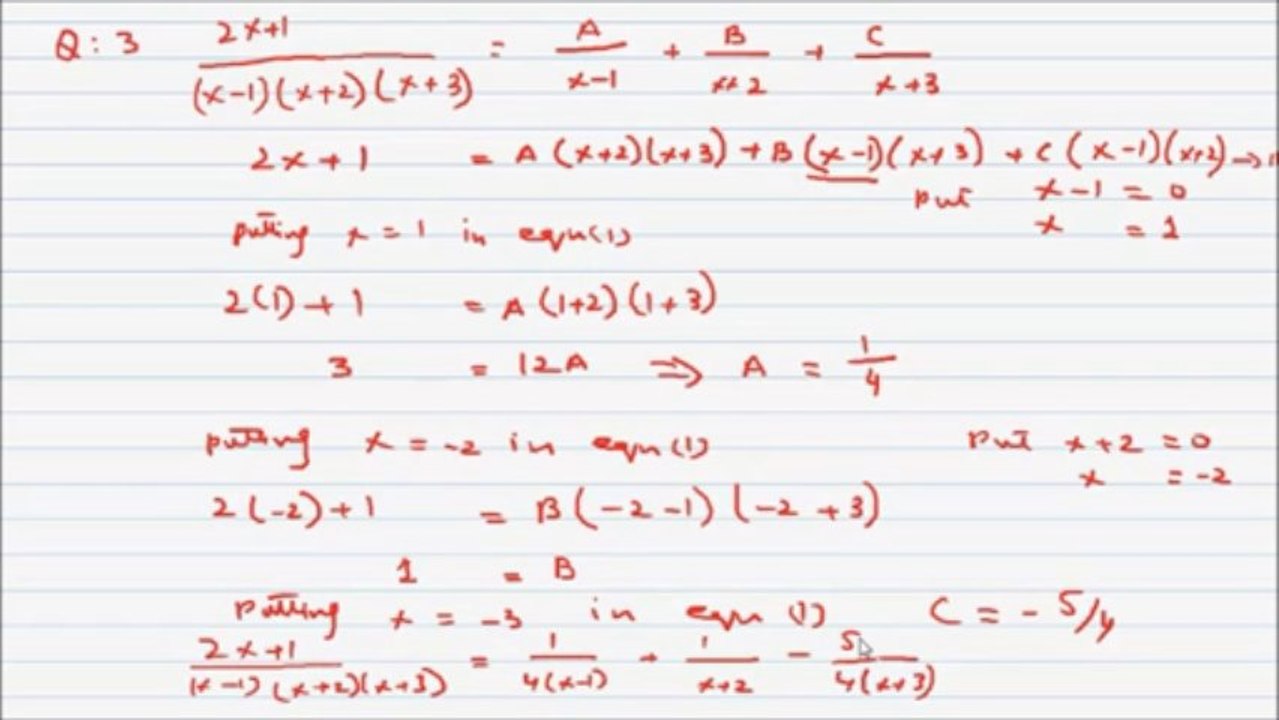 Q : 3 (2x+1)/((x-1)(x+2)(x+3)) = A/(x-1) + B/(x+2) + C/(x+3)
2x+1 = A(x+2)(x+3) + B(x-1)(x+3) + C(x-1)(x+2) →
put x-1 = 0
x = 1
putting x = 1 in eqn(1)
2(1)+1 = A(1+2)(1+3)
3 = 12A ⇒ A = 1/4
putting x = -2 in eqn(1)
put x+2 = 0
x = -2
2(-2)+1 = B(-2-1)(-2+3)
1 = B
putting x = -3 in eqn (1) C = -5/4
(2x+1)/((x-1)(x+2)(x+3)) = 1/(4(x-1)) + 1/(x+2) - 5/(4(x+3))